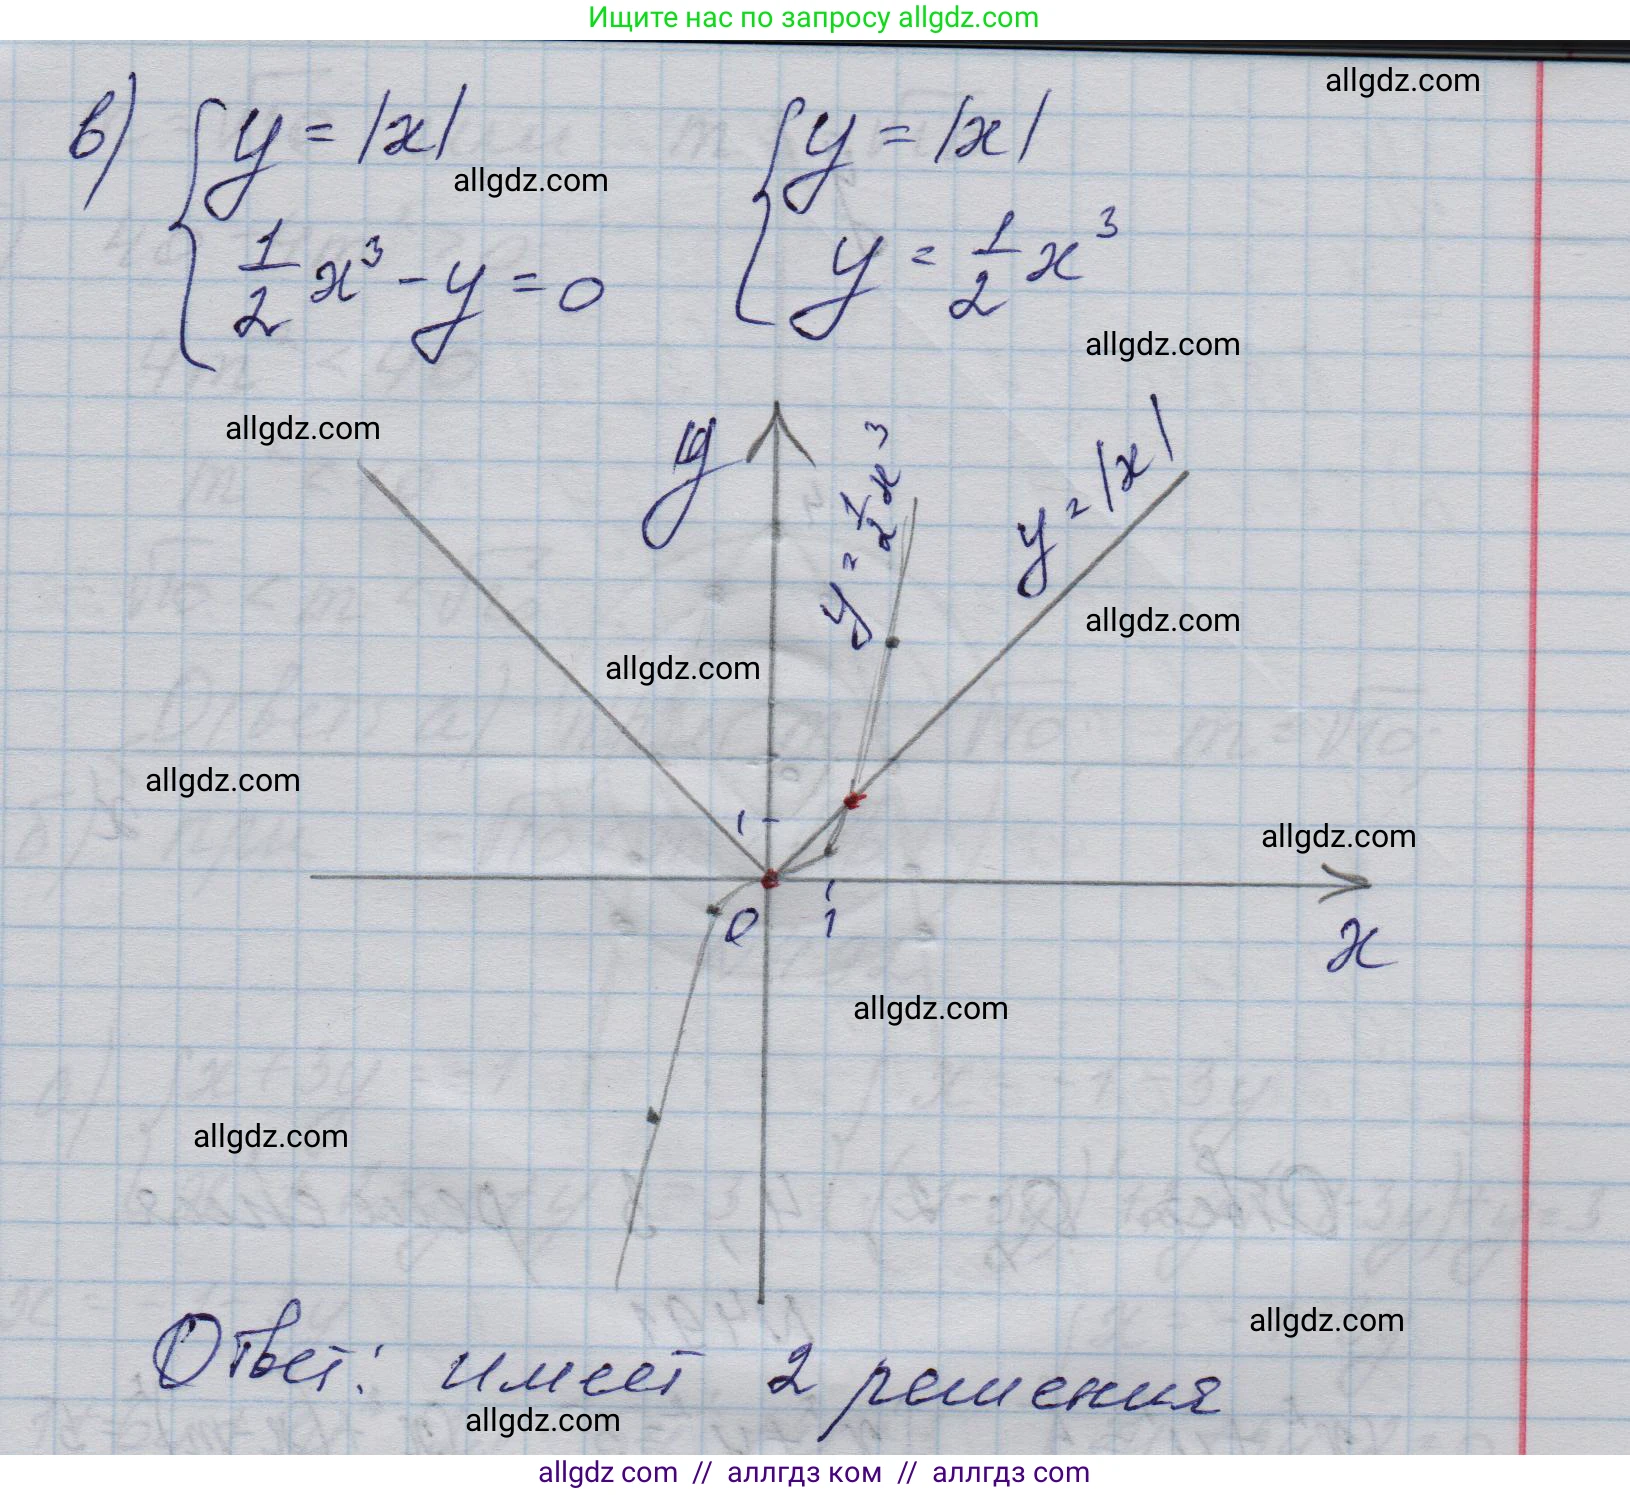 Ищите нас по запросу allgdz.com
allgdz.com
в) { y = |x|
{ y = |x|
allgdz.com
1/2 x³ - y = 0
y = 1/2 x³
allgdz.com
allgdz.com
y
y = 1/2 x³
y = |x|
allgdz.com
allgdz.com
allgdz.com
1
allgdz.com
0
1
x
allgdz.com
allgdz.com
allgdz.com
Ответ: имеет 2 решения
allgdz.com
allgdz com // аллгдз ком // аллгдз com